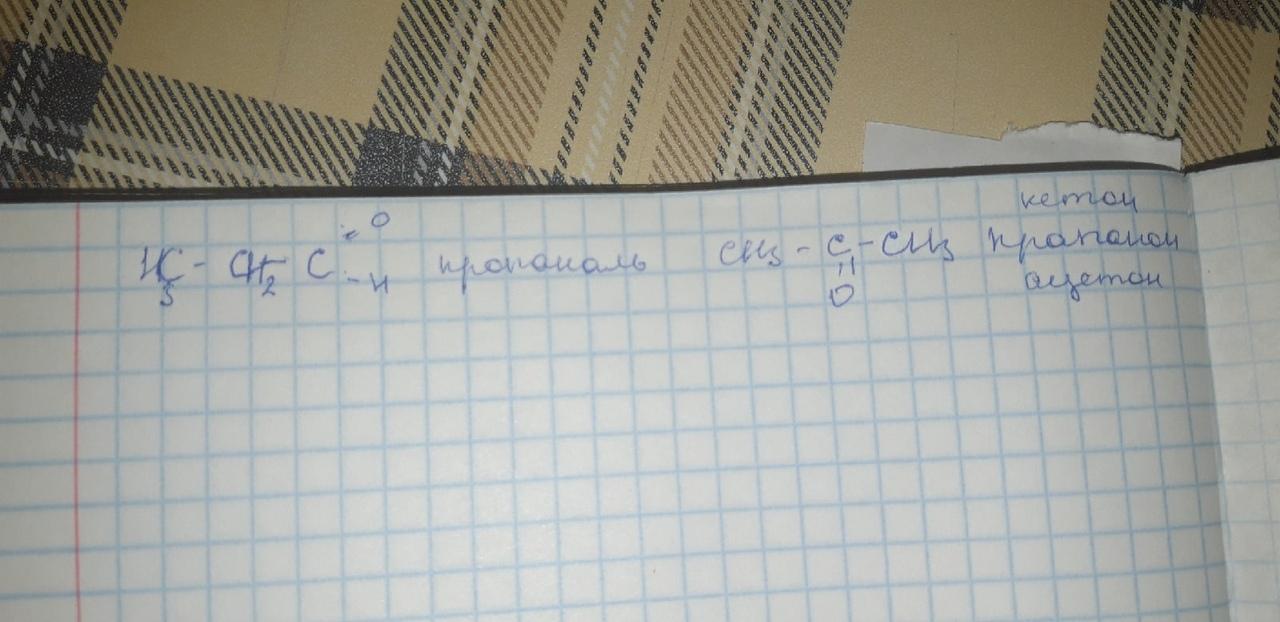 кетон
H₃C - CH₂ - C =O -H пропаналь CH₃ - C - CH₃ пропанон
|| ацетон
O